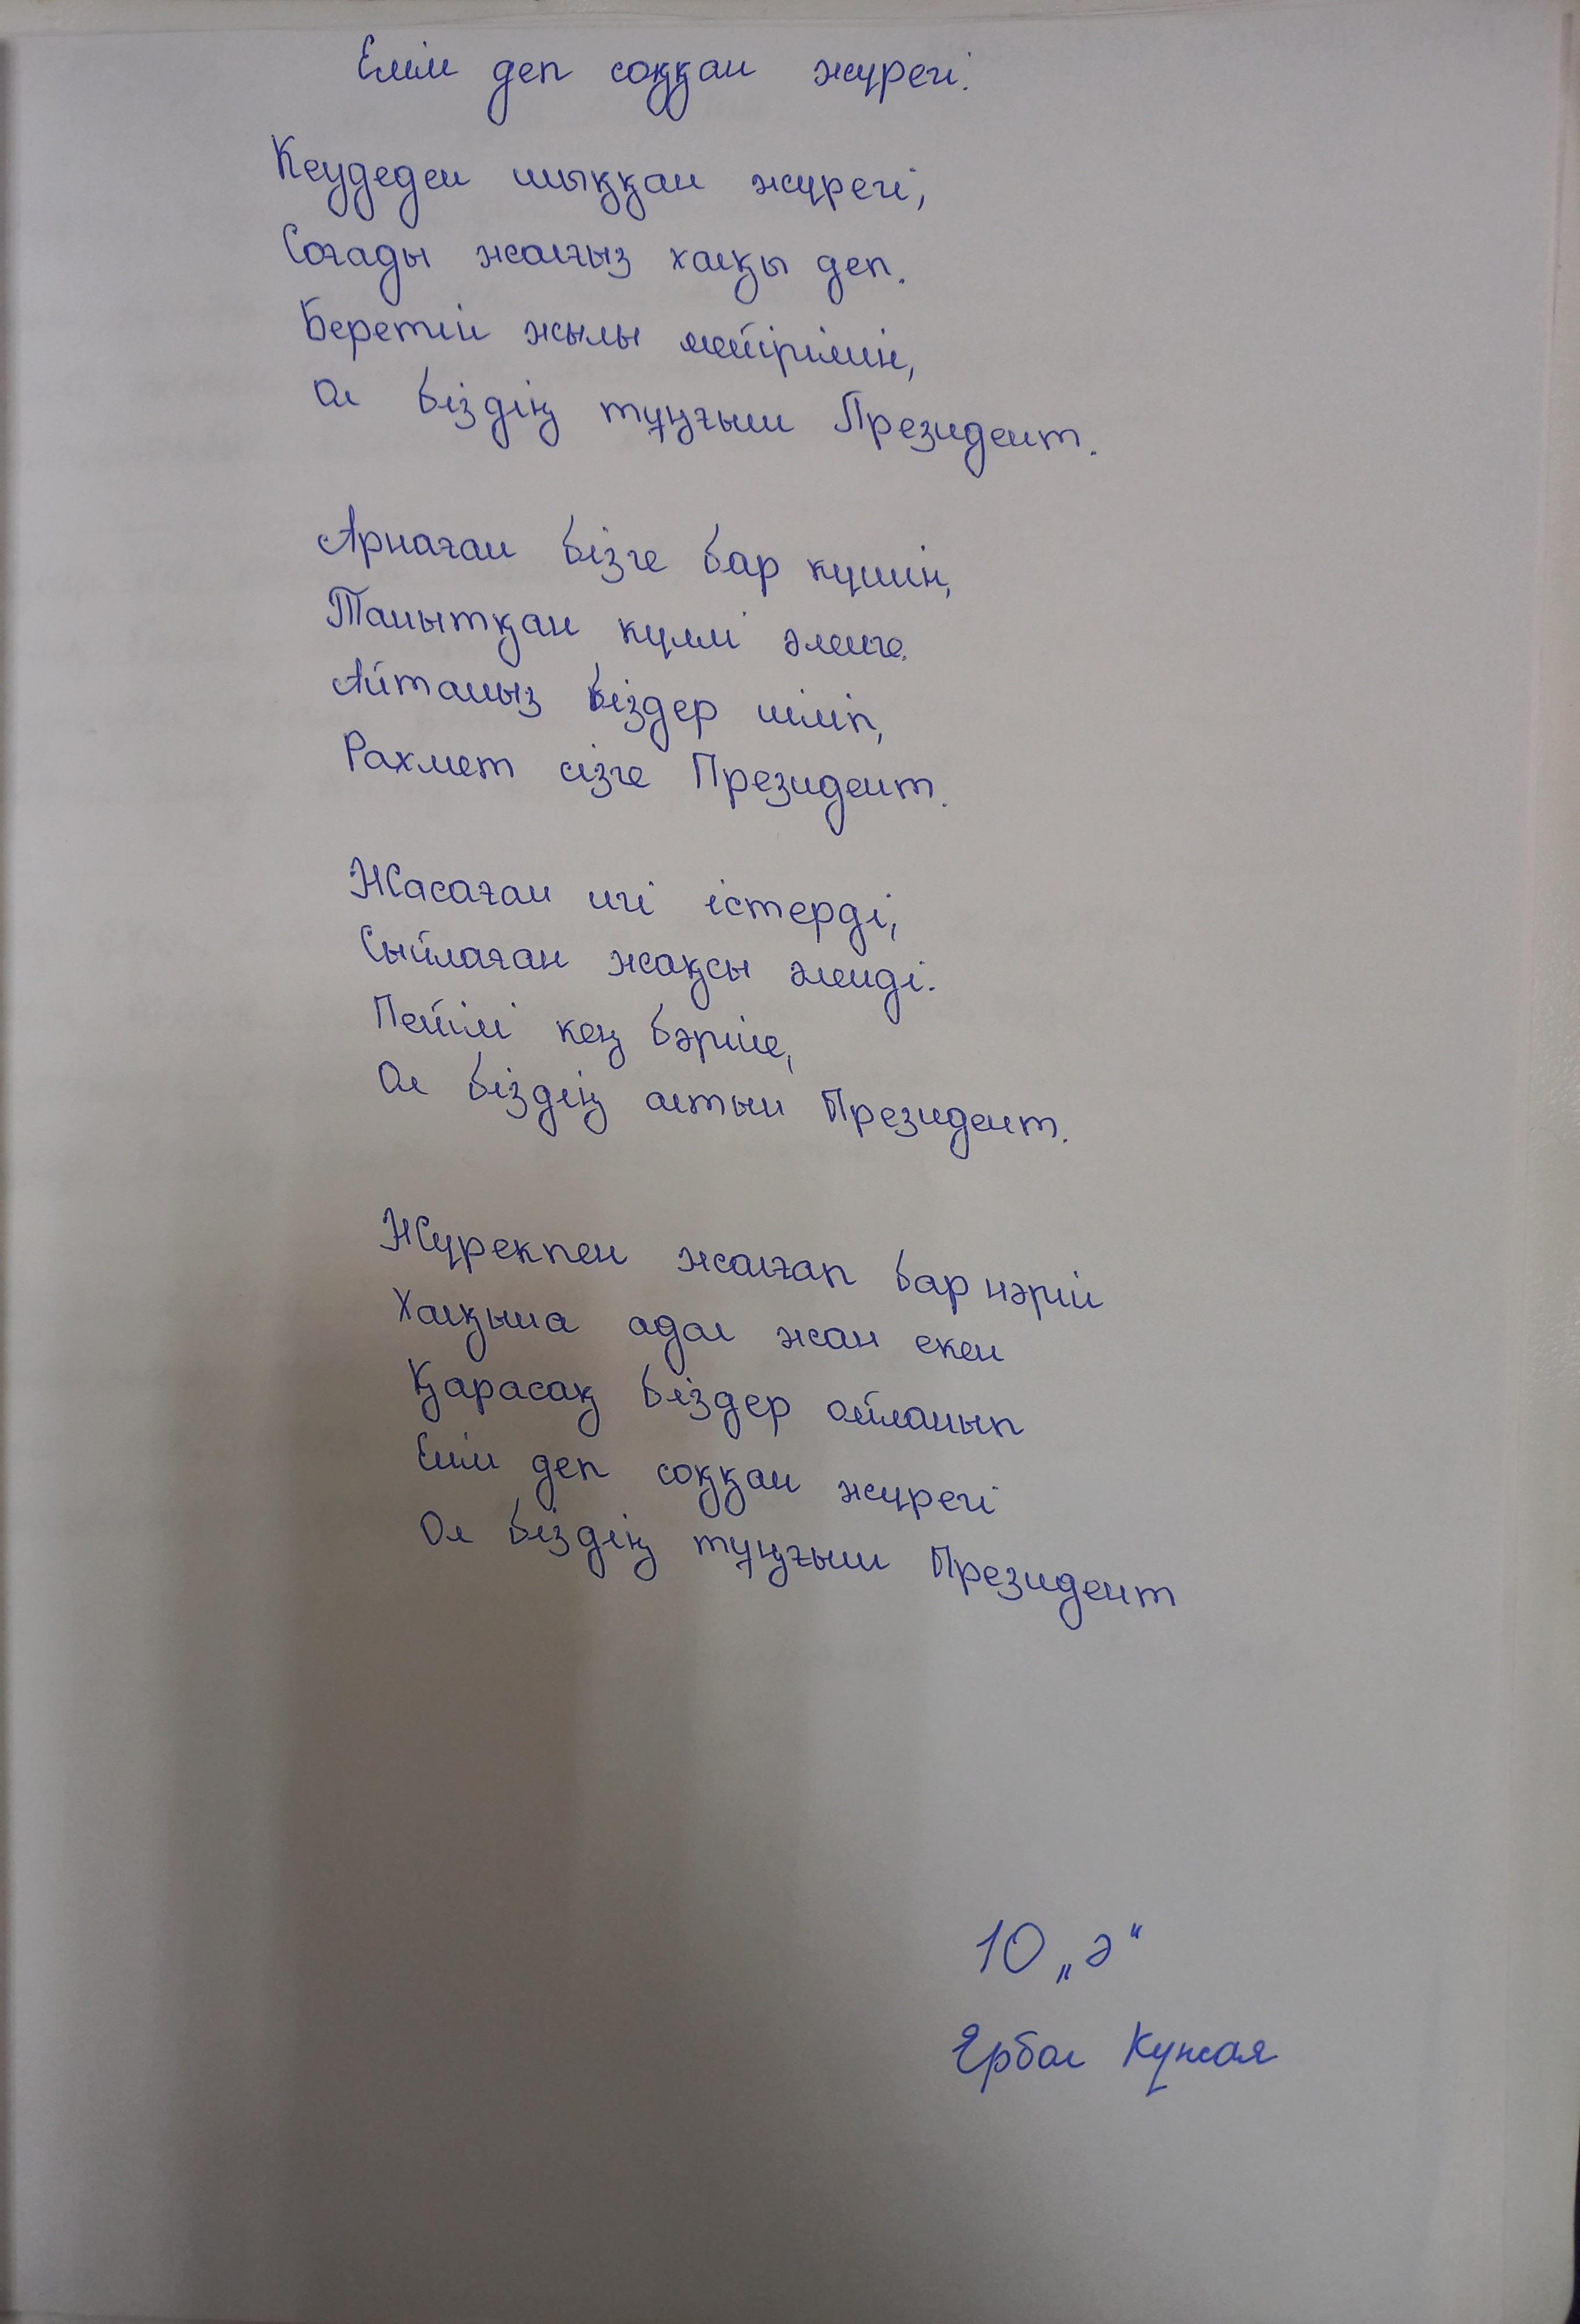 Елім деп соққан жүрегі.
Кеудеден шыққан жүрегі,
Соғады жалғыз халқы деп.
Беретін жылы мейірімін,
Ол біздің тұңғыш Президент.
Арнаған бізге бар күшін,
Танытқан күллі әлемге.
Айтамыз біздер иіліп,
Рахмет сізге Президент.
Жасаған игі істерді,
Сыйлаған жақсы әлемді.
Пейілі кең бәріне,
Ол біздің алтын Президент.
Жүрекпен жалғап бар нәрін
Халқына адал жан екен
Қарасақ біздер ойланып
Елім деп соққан жүрегі
Ол біздің тұңғыш Президент
10 „ә“
Ербол